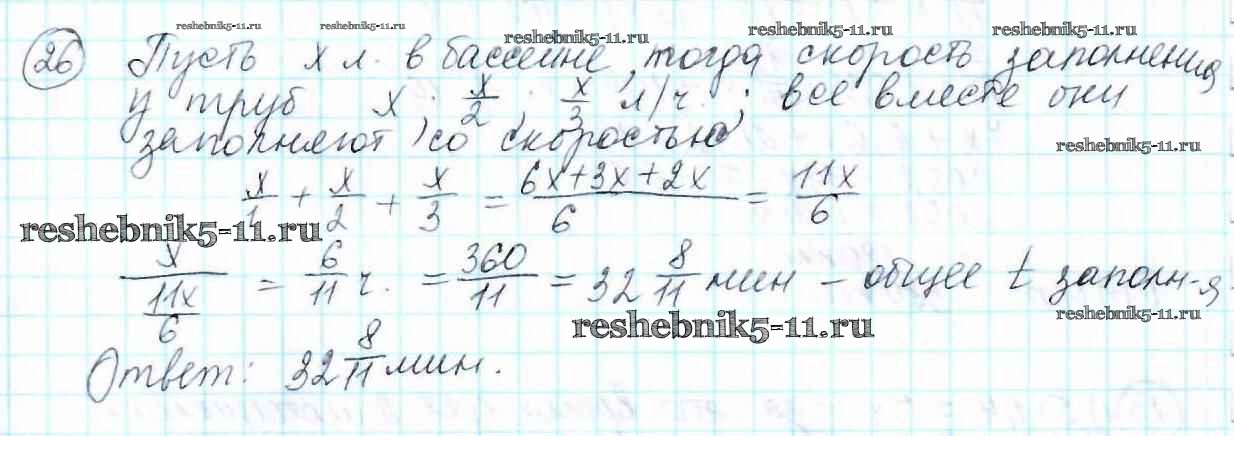 reshebnik5-11.ru reshebnik5-11.ru reshebnik5-11.ru reshebnik5-11.ru reshebnik5-11.ru
26 Пусть x л. в бассейне, тогда скорость заполнения
у труб x ; x/2 ; x/3 л/ч. ; все вместе они
заполняют со скоростью
reshebnik5-11.ru
x/1 + x/2 + x/3 = (6x+3x+2x)/6 = 11x/6
reshebnik5-11.ru
x/(11x/6) = 6/11 ч. = 360/11 = 32 8/11 мин – общее t заполн-я
reshebnik5-11.ru reshebnik5-11.ru
Ответ: 32 8/11 мин.